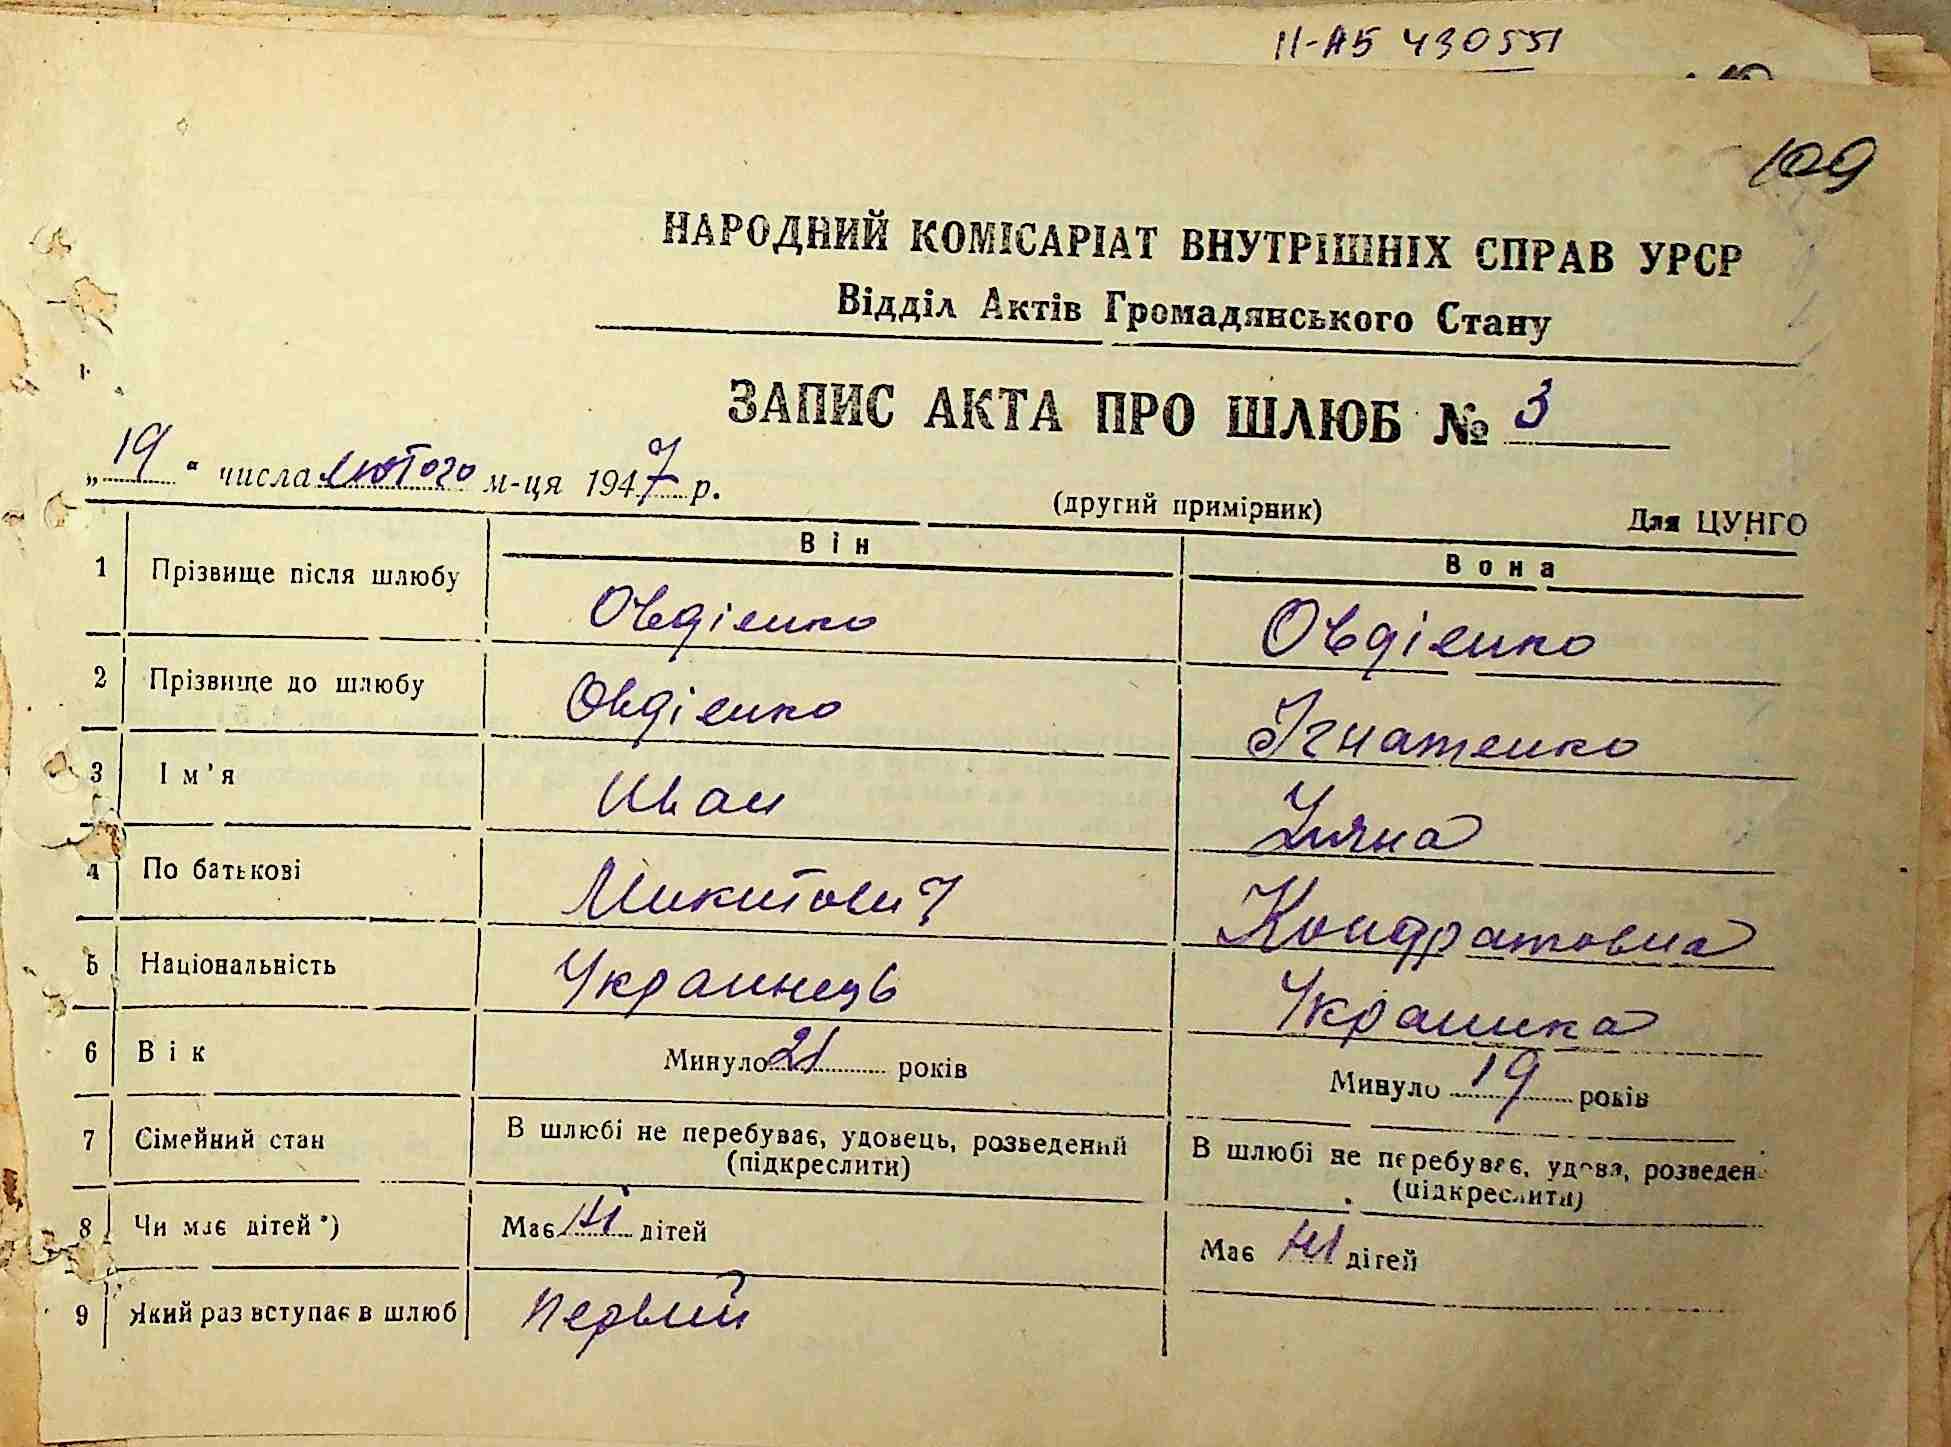 II-АБ 430551
109
НАРОДНИЙ КОМІСАРІАТ ВНУТРІШНІХ СПРАВ УРСР
Відділ Актів Громадянського Стану
ЗАПИС АКТА ПРО ШЛЮБ № 3
„19" числа лютого м-ця 1947 р.
(другий примірник) Для ЦУНГО
Він Вона
1 Прізвище після шлюбу Овдіенко Овдіенко
2 Прізвище до шлюбу Овдіенко Ігнатенко
3 Ім'я Иван Уляна
4 По батькові Микитович Кондратовна
5 Національність Украинець Украинка
6 Вік Минуло 21 років Минуло 19 років
7 Сімейний стан В шлюбі не перебуває, удовець, розведений В шлюбі не перебуває, удова, розведен
(підкреслити) (підкреслити)
8 Чи має дітей*) Має ні дітей Має ні дітей
9 Який раз вступає в шлюб первий